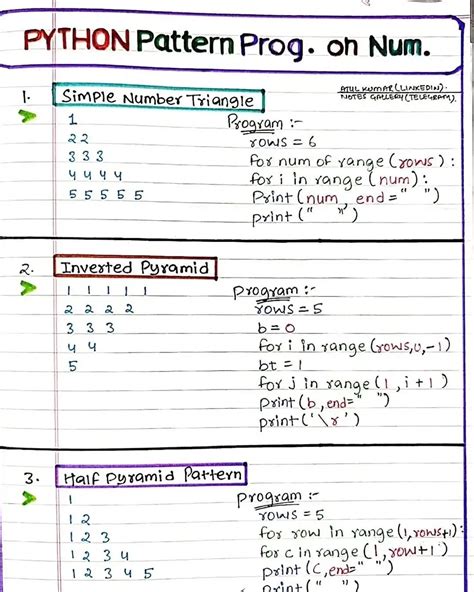 PYTHON Pattern Prog. on Num.
1. Simple Number Triangle
ATUL KUMAR (LINKEDIN).
NOTES GALLERY (TELEGRAM).
1
2 2
3 3 3
4 4 4 4
5 5 5 5 5
Program :-
rows = 6
for num of range (rows) :
for i in range (num) :
Print (num, end = " ")
print (" ")
2. Inverted Pyramid
1 1 1 1 1
2 2 2 2
3 3 3
4 4
5
Program :-
rows = 5
b = 0
for i in range (rows,0,-1)
bt = 1
for j in range (1, i + 1)
print (b, end=" ")
print ('\r')
3. Half Pyramid Pattern
1
1 2
1 2 3
1 2 3 4
1 2 3 4 5
Program :-
rows = 5
for row in range (1, rows+1):
for c in range (1, row+1)
print (c, end=" ")
print (" ")